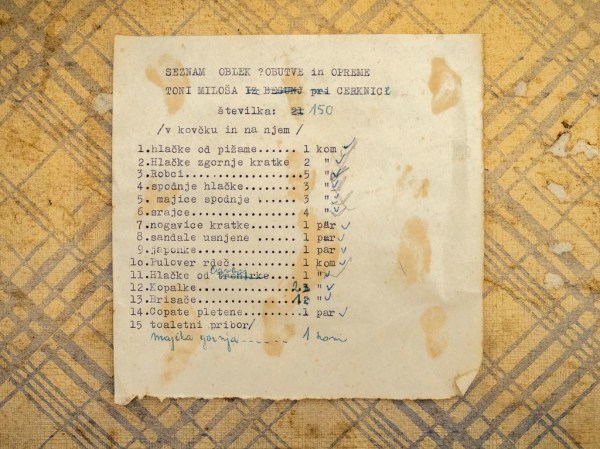 SEZNAM OBLEK ?OBUTVE in OPREME
TONI MILOŠA IZ BEGUNJ pri CERKNICI
številka: 21 150
/v kovčku in na njem /
1.hlačke od pižame....... 1 kom ✓
2.Hlačke zgornje kratke 2 " ✓
3.Robci................. 5 " ✓
4.spodnje hlačke........ 3 " ✓
5. majice spodnje ...... 3 " ✓
6.srajce................ 4 " ✓
7.nogavice kratke....... 1 par ✓
8.sandale usnjene ...... 1 par ✓
9.japonke............... 1 par ✓
1o.Pulover rdeč......... 1 kom ✓
11.Hlačke od trenirke.... 1 " ✓
12.Kopalke.............. 23 " ✓
13.Brisače.............. 12 " ✓
14.Copate pletene........1 par ✓
15 toaletni pribor/
majčka gornja ------ 1 kom